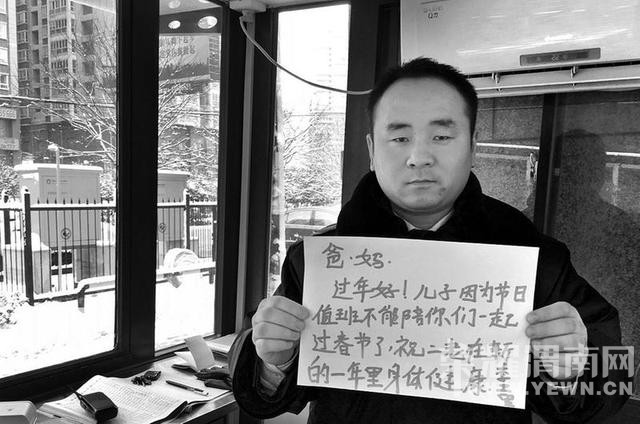 爸·妈·
过年好！儿子因为节日
值班不能陪你们一起
过春节了，祝二老在新
的一年里身体健康
渭南网
YEWN.CN